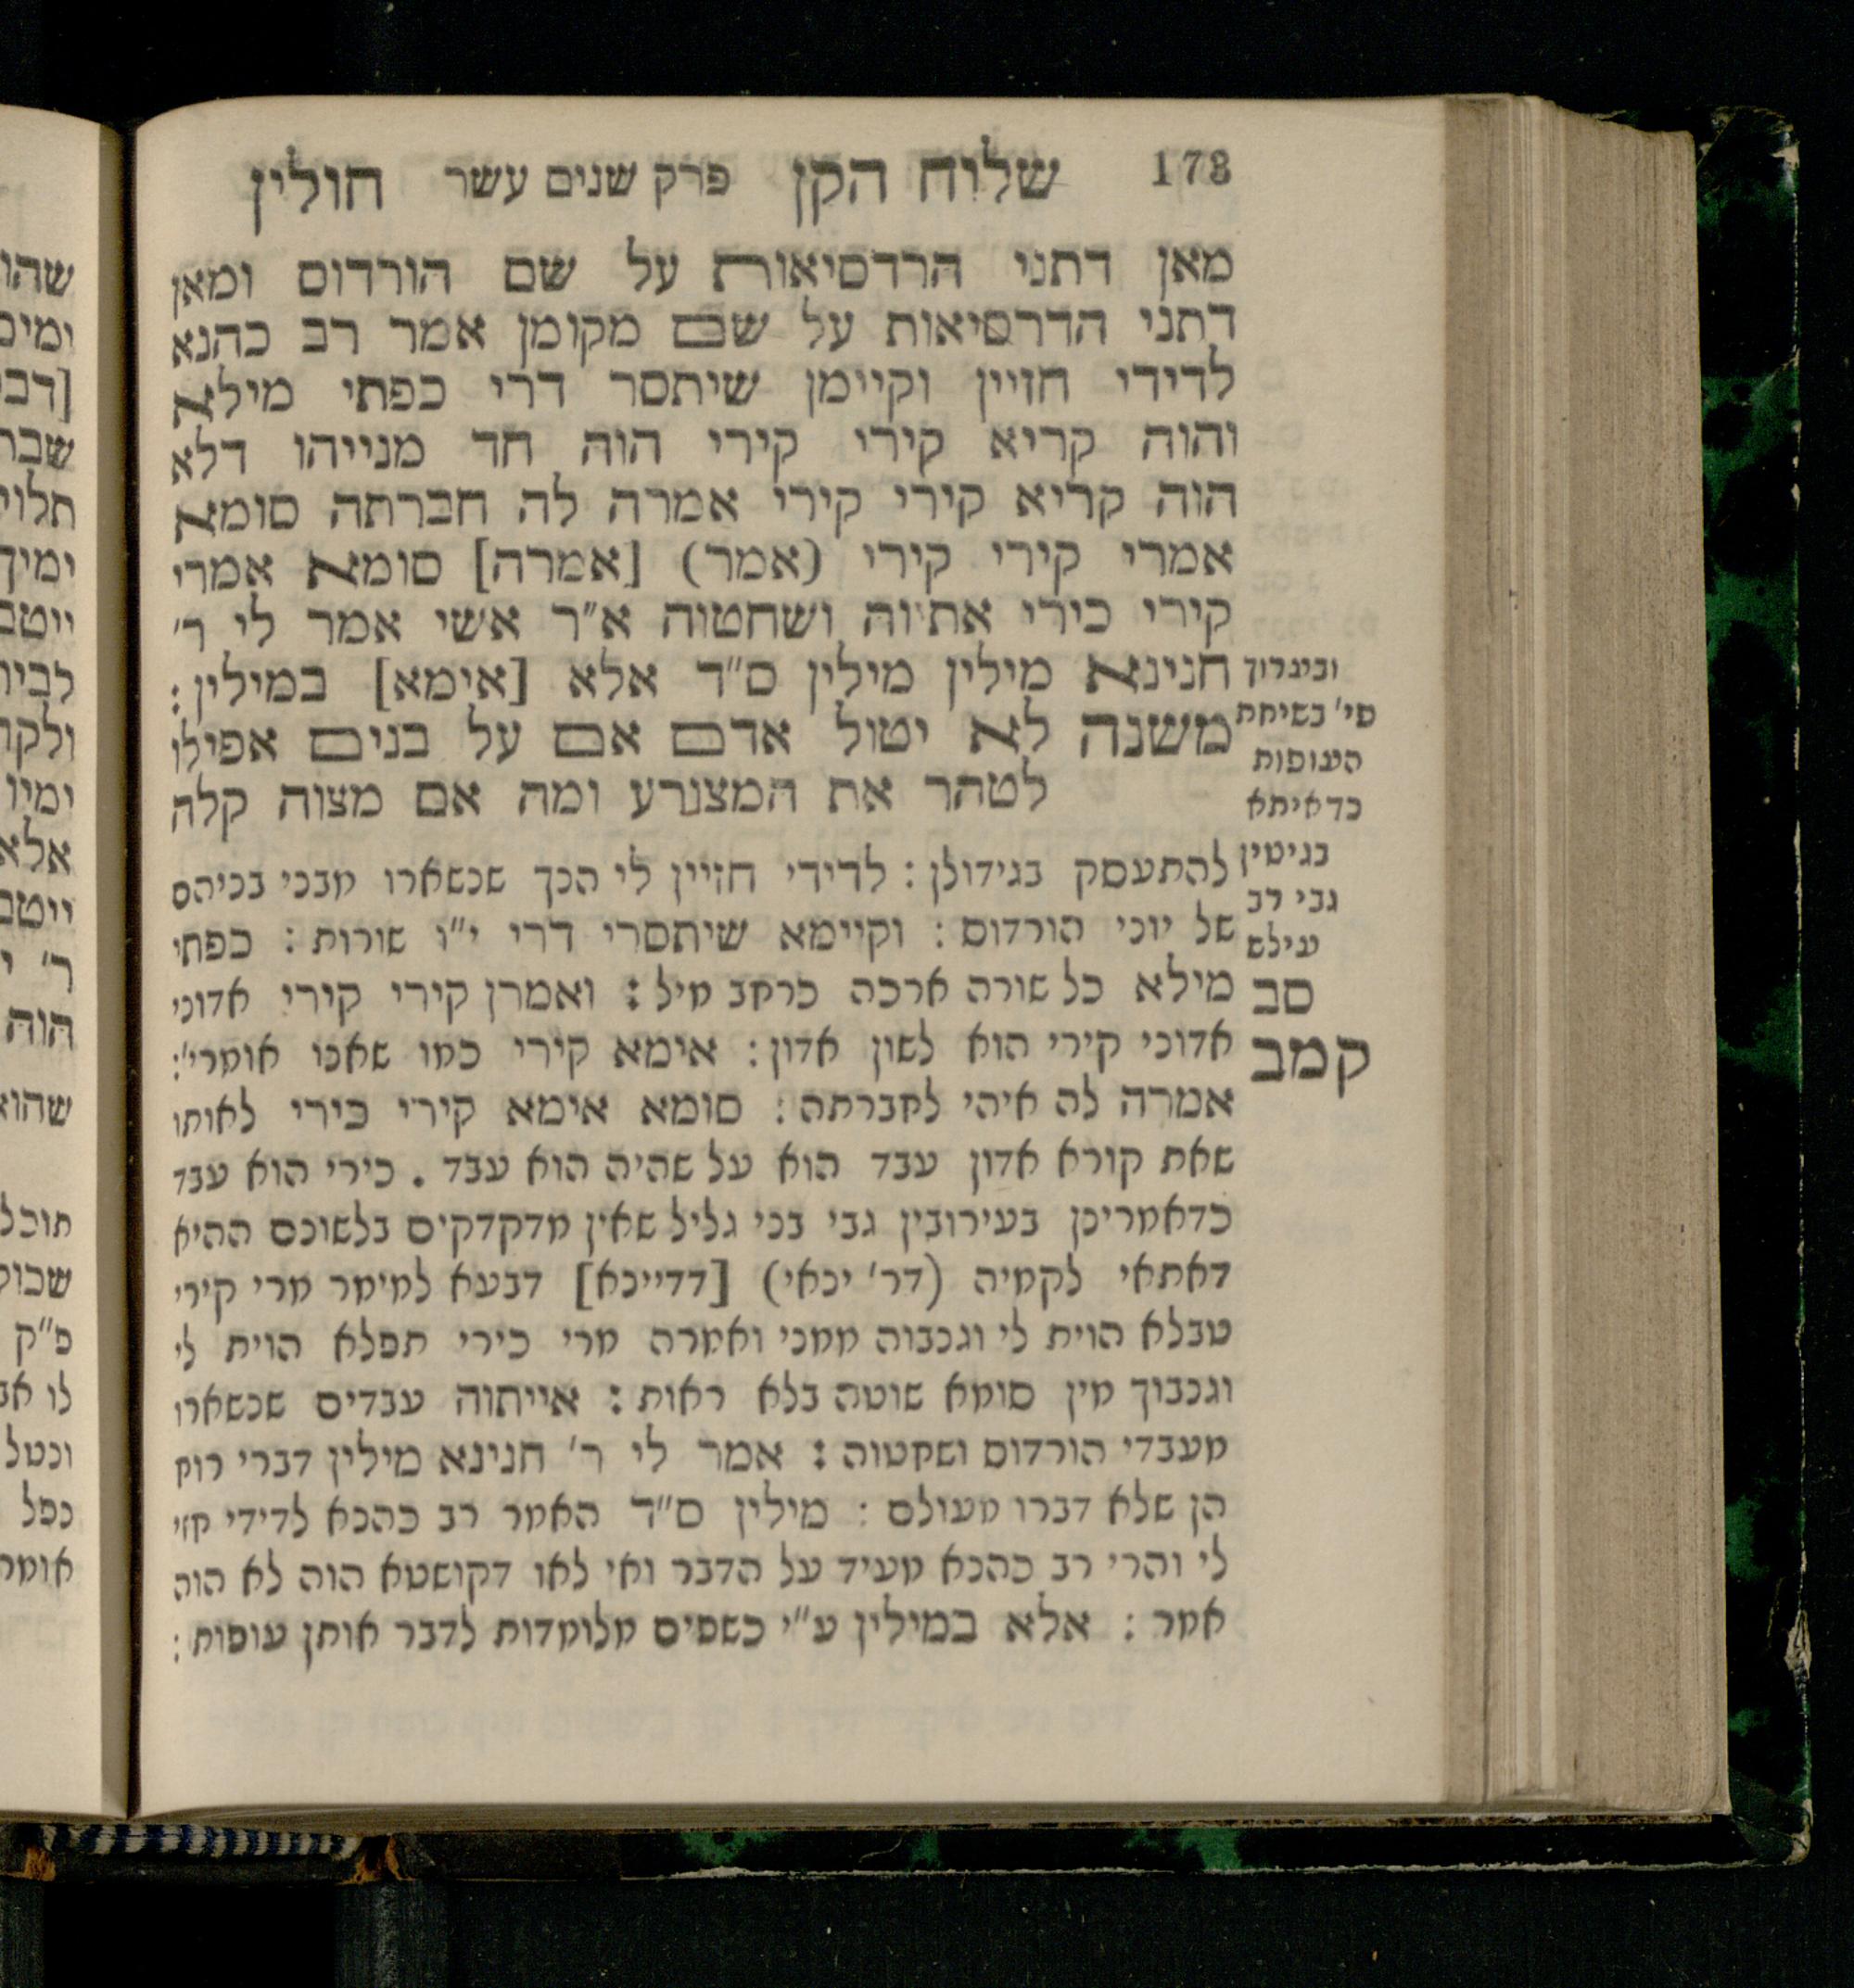 178 שלוח הקן פרק שנים עשר חולין
מאן דתני הרדסיאות על שם הורדוס ומאן
דתני הדרסיאות על שם מקומן אמר רב כהנא
לדידי חזיין וקיימן שיתסר דרי כפתי מילא
והוה קריא קירי קירי הוה חד מנייהו דלא
הוה קריא קירי קירי אמרה לה חברתה סומא
אמרי קירי קירי (אמר) [אמרה] סומא אמרי
קירי כירי אתיוה ושחטוה א״ר אשי אמר לי ר׳
חנינא מילין מילין ס״ד אלא [אימא] במילין:
משנה לא יטול אדם אם על בנים אפילו
לטהר את המצורע ומה אם מצוה קלה
להתעסק בגידולן: לדידי חזיין לי הנך שנשארו מבני בניהם
של יוני הורדוס: וקיימא שיתסרי דרי י״ו שורות: כפתי
מילא כל שורה ארכה כרחב מיל: ואמרן קירי קירי אדוני
אדוני קירי הוא לשון אדון: אימא קירי כמו שאנו אומרי׳:
אמרה לה איהי לחברתה: סומא אימא קירי כירי לאותו
שאת קורא אדון עבד הוא על שהיה הוא עבד. כירי הוא עבד
כדאמרינן בעירובין גבי בני גליל שאין מדקדקים בלשונם ההיא
דאתאי לקמיה (דר׳ ינאי) [דדיינא] דבעא למימר מרי קירי
טבלא הוית לי וגנבוה ממני ואמרה מרי כירי תפלא הוית לי
וגנבוך מין סומא שוטה בלא ראות: אייתוה עבדים שנשארו
מעבדי הורדוס ושחטוה: אמר לי ר׳ חנינא מילין דברי רוח
הן שלא דברו מעולם: מילין ס״ד האמר רב כהנא לדידי חזי
לי והרי רב כהנא מעיד על הדבר ואי לאו דקושטא הוה לא הוה
אמר: אלא במילין ע״י כשפים מלומדות לדבר אותן עופות:
פי׳ בשיחת
העופות
כדאיתא
בגיטין
גבי רב
עילש
סב
קמב